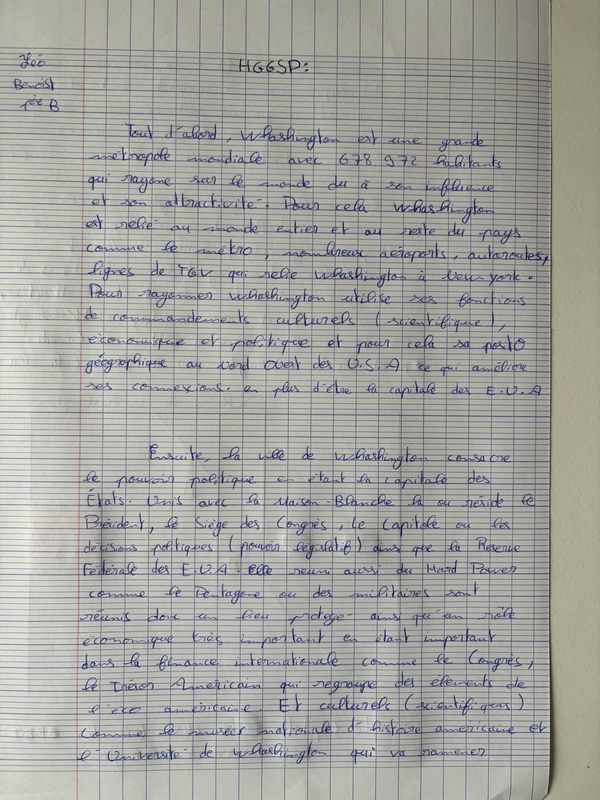 Léo
Benoist
1ère B
HGGSP:
Tout d'abord, Whashington est une grande
métropole mondiale avec 678 972 habitants
qui rayone sur le monde du à son influence
et son attractivité. Pour cela Whashington
est relié au monde entier et au reste du pays
comme le métro, nombreux aéroports, autoroutes,
lignes de TGV qui relie Whashington à New york.
Pour rayonner Whashington utilise ses fonctions
de commandements culturels (scientifique),
économique et politique et pour cela sa positO
géographique au Nord Ouest des U.S.A ce qui améliore
ses connexions. en plus d'être la capitale des E.U.A
Ensuite, la ville de Whashington consacre
le pouvoir politique en étant la capitale des
États-Unis avec la Maison-Blanche la ou réside le
Président, le Siège des Congrès, le Capitole ou les
décisions politiques (pouvoir législatif) ainsi que la Réserve
Fédérale des E.U.A. elle reuni aussi du Hard Power
comme le Pentagone ou des militaires sont
réunis donc un lieu protégé ainsi qu'un rôle
économique très important en étant important
dans la finance internationale comme le Congrès,
le Trésor Américain qui regroupe des elements de
l'éco américaine. Et culturels (scientifiques)
comme le museer nationale d'histoire américaine et
l'Université de Whashington qui va ramener